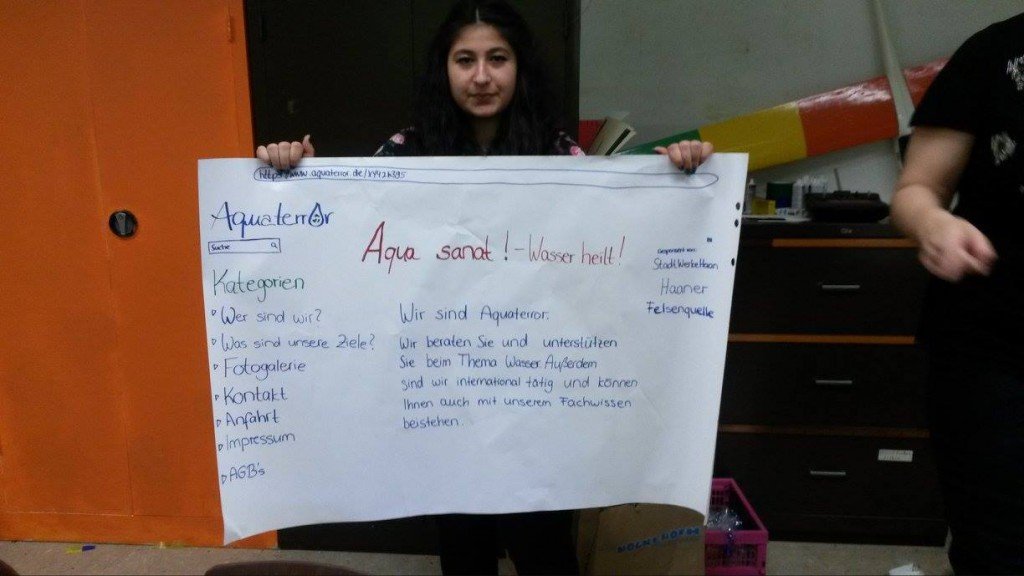 https://www.aquaterror.de/
Aquaterror
Suche
Aqua sanat! - Wasser heilt!
Gesponsert von:
StadtWerkeHaan
Haaner
Felsenquelle
Kategorien
Wer sind wir?
Was sind unsere Ziele?
Fotogalerie
Kontakt
Anfahrt
Impressum
AGB's
Wir sind Aquaterror.
Wir beraten Sie und unterstützen
Sie beim Thema Wasser. Außerdem
sind wir international tätig und können
Ihnen auch mit unserem Fachwissen
beistehen.